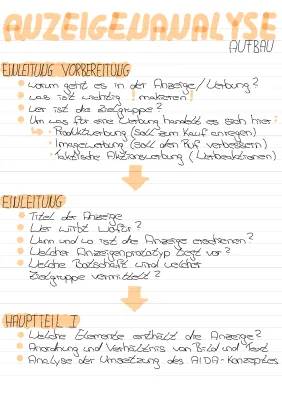 ANZEIGENANALYSE
AUFBAU
EINLEITUNG VORBEREITUNG
• Worum geht es in der Anzeige/Werbung?
• Was ist wichtig ! markieren !
• Wer ist die Zielgruppe?
• Um was für eine Werbung handelt es sich hier:
↳ • Produktwerbung (soll zum Kauf anregen)
• Imagewerbung (soll den Ruf verbessern)
• Taktische Aktionswerbung (Werbeaktionen)
EINLEITUNG
• Titel der Anzeige
• Wer wirbt wofür?
• Wann und wo ist die Anzeige erschienen?
• Welcher Anzeigenprototyp liegt vor?
• Welche Botschaft wird welcher
Zielgruppe vermittelt?
HAUPTTEIL I
• Welche Elemente enthält die Anzeige?
• Anordnung und Verhältnis von Bild und Text
• Analyse der Umsetzung des AIDA-Konzeptes